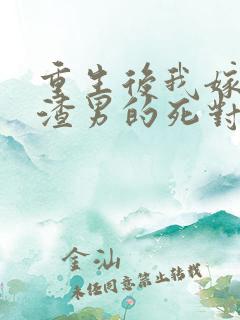 重生後我嫁
渣男的死對
金汕
未任同意禁止转载